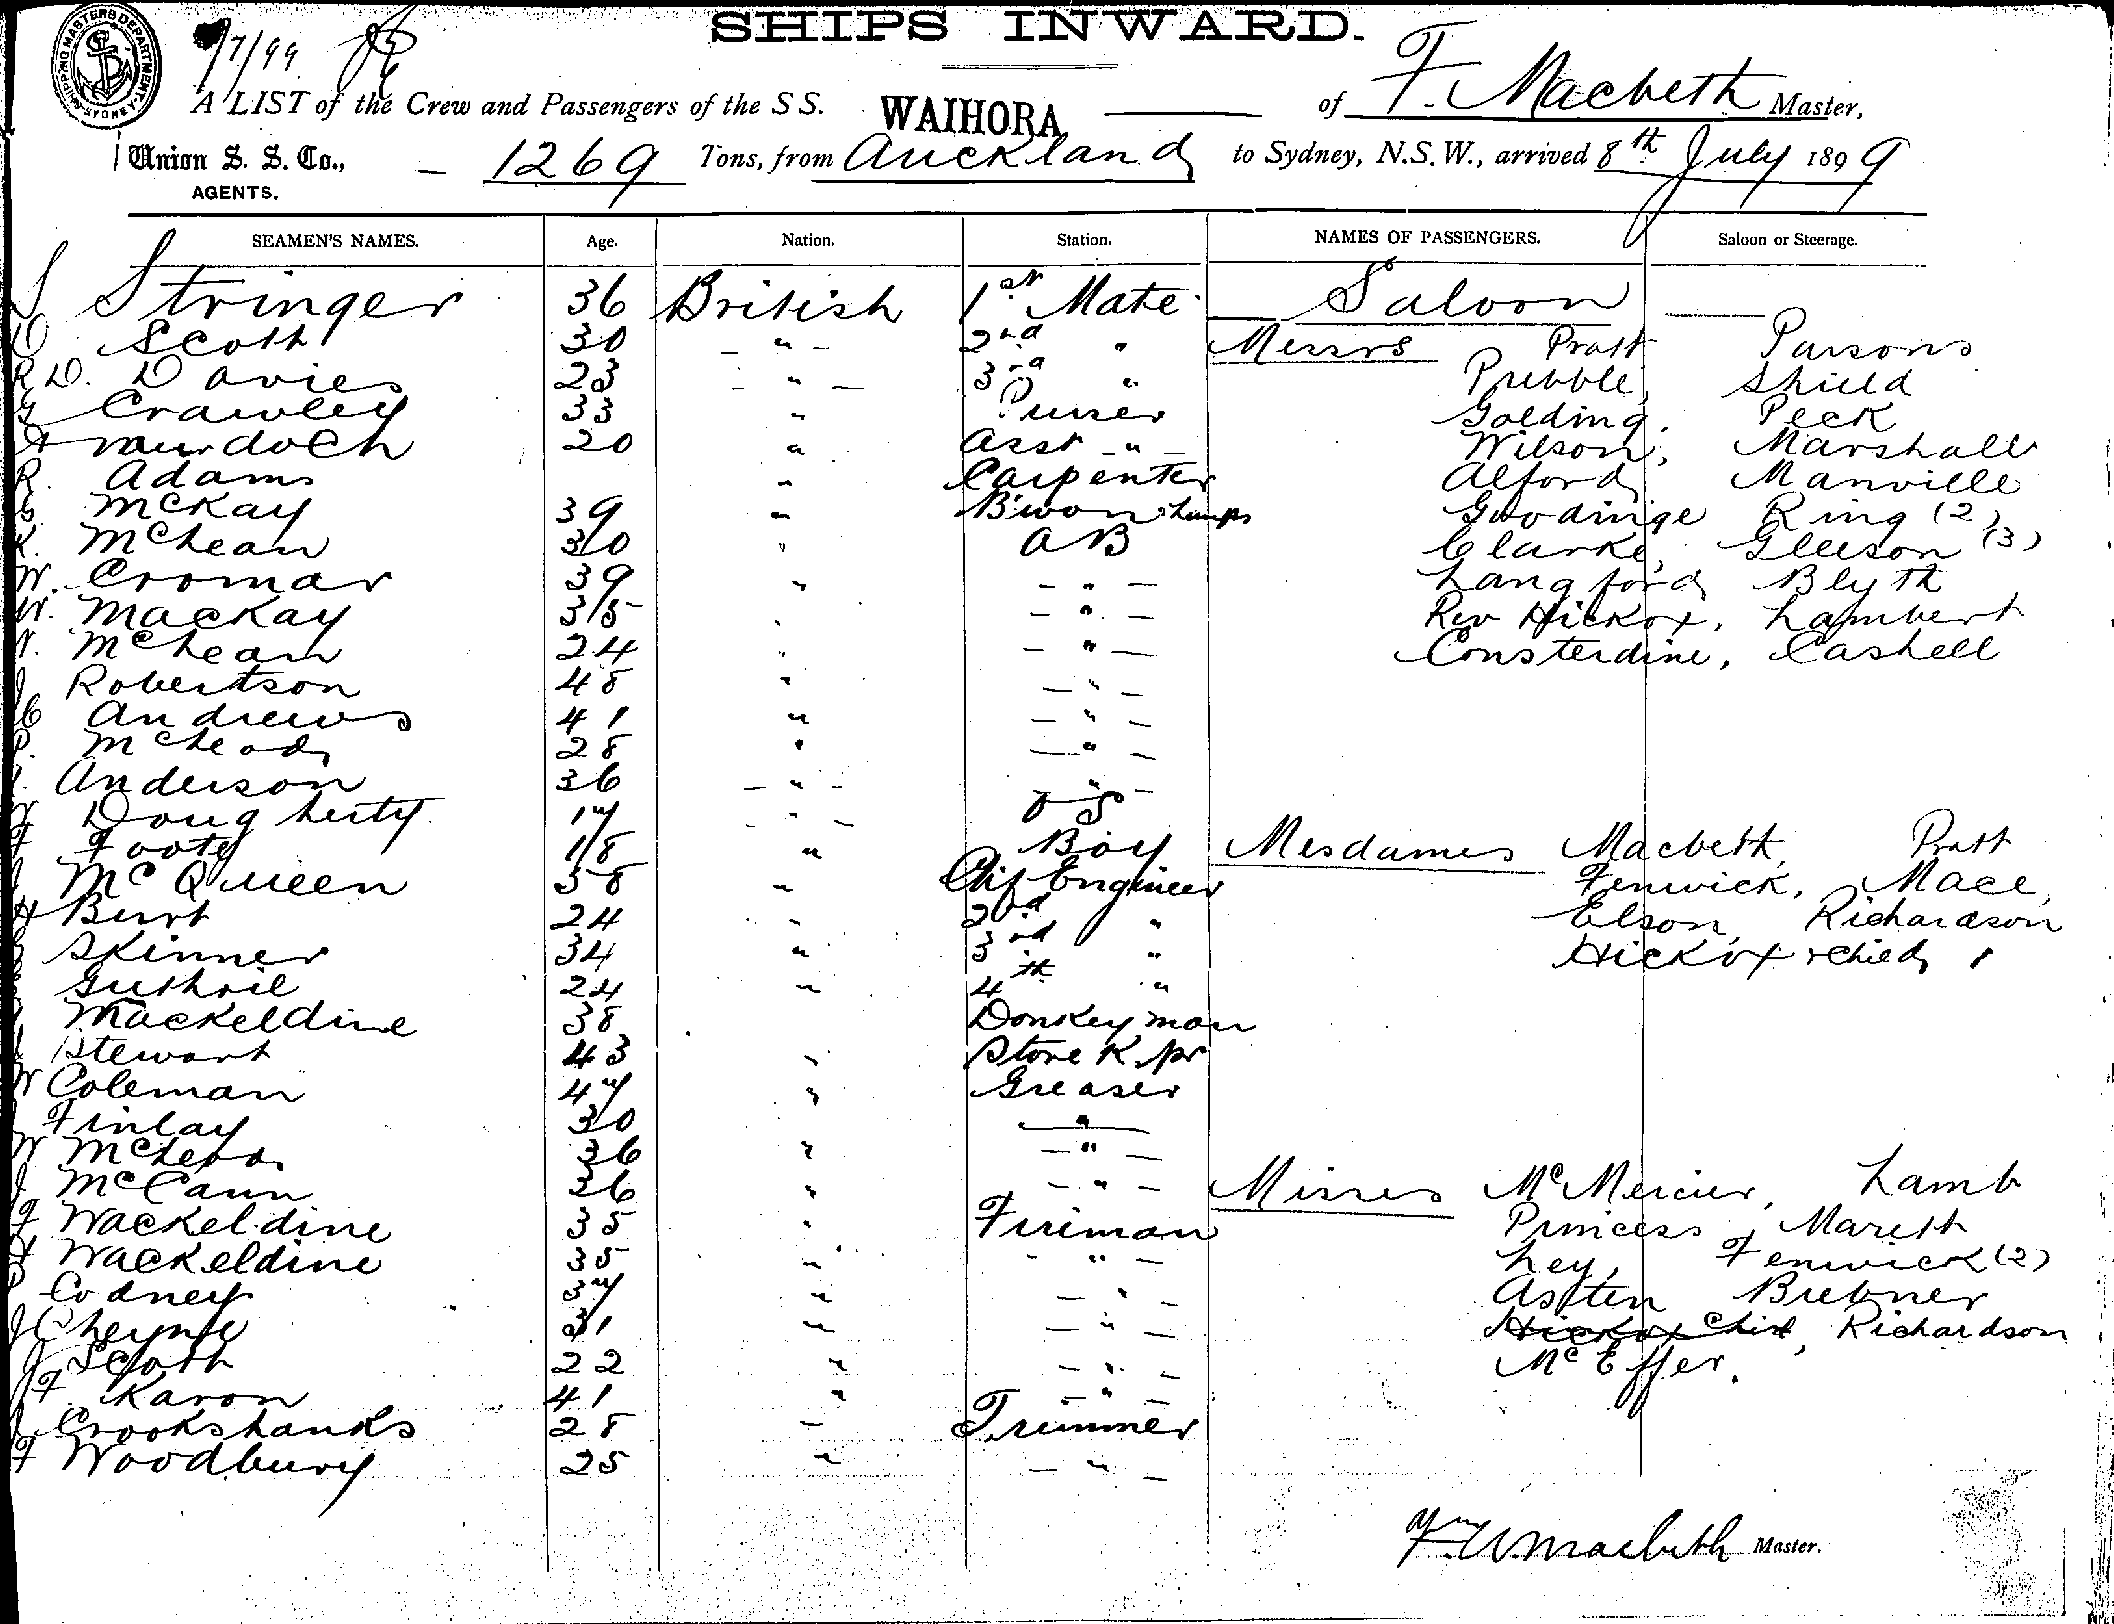 SHIPS INWARD.
SHIPPING MASTERS DEPARTMENT SYDNEY
/7/99
A LIST of the Crew and Passengers of the S S. WAIHORA of F. Macbeth Master,
Union S. S. Co., AGENTS. 1269 Tons, from Auckland to Sydney, N.S.W., arrived 8th July 1899
SEAMEN'S NAMES. Age. Nation. Station. NAMES OF PASSENGERS. Saloon or Steerage.
Stringer 36 British 1st Mate Saloon
Scott 30 " 2nd " Messrs Pratt Parsons
R D. Davies 23 " 3rd " Pribble, Shield
Crawley 33 " Purser Golding, Peck
Murdoch 20 " Asst " Wilson, Marshall
R. Adams " Carpenter Alford Manville
McKay 39 " B'swon & Lamps Goodinge King (2)
K. McLean 30 " AB Clarke, Gleeson (3)
W. Cromar 39 " " Langford Blyth
W. Mackay 35 " " Rev Hickox, Lambert
N. McLean 24 " " Consterdine, Cashell
J Robertson 48 " "
C Andrews 41 " "
P. McLeod 28 " "
Anderson 36 " "
W Dougherty 17 " O S
F Foote 18 " Boy Mesdames Macbeth, Pratt
J McQueen 58 " Chif Engineer Fenwick, Mace,
H Burt 24 " 2nd " Elson, Richardson
Skinner 34 " 3rd " Hickox & child 1
Guthrie 24 " 4th "
Mackeldine 38 " Donkeyman
Stewart 43 " Store Kpr
W Coleman 47 " Greaser
Finlay 30 "
W McLeod 36 " "
J McCann 36 " " Misses McMercier, Lamb
F Wackeldine 35 " Fireman Princess Marett
H Wackeldine 35 " " Ley, Fenwick (2)
P Codney 37 " " Asten Brebner
J Cheyne 31 " " Hickox Child, Richardson
J Scott 22 " " McEffer.
F Karon 41 " "
J Crookshanks 28 " Trimmer
F Woodbury 25 " "
F. W. Macbeth Master.